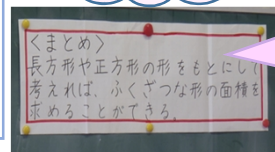 ＜まとめ＞
長方形や正方形の形をもとにして
考えれば、ふくざつな形の面積を
求めることができる。